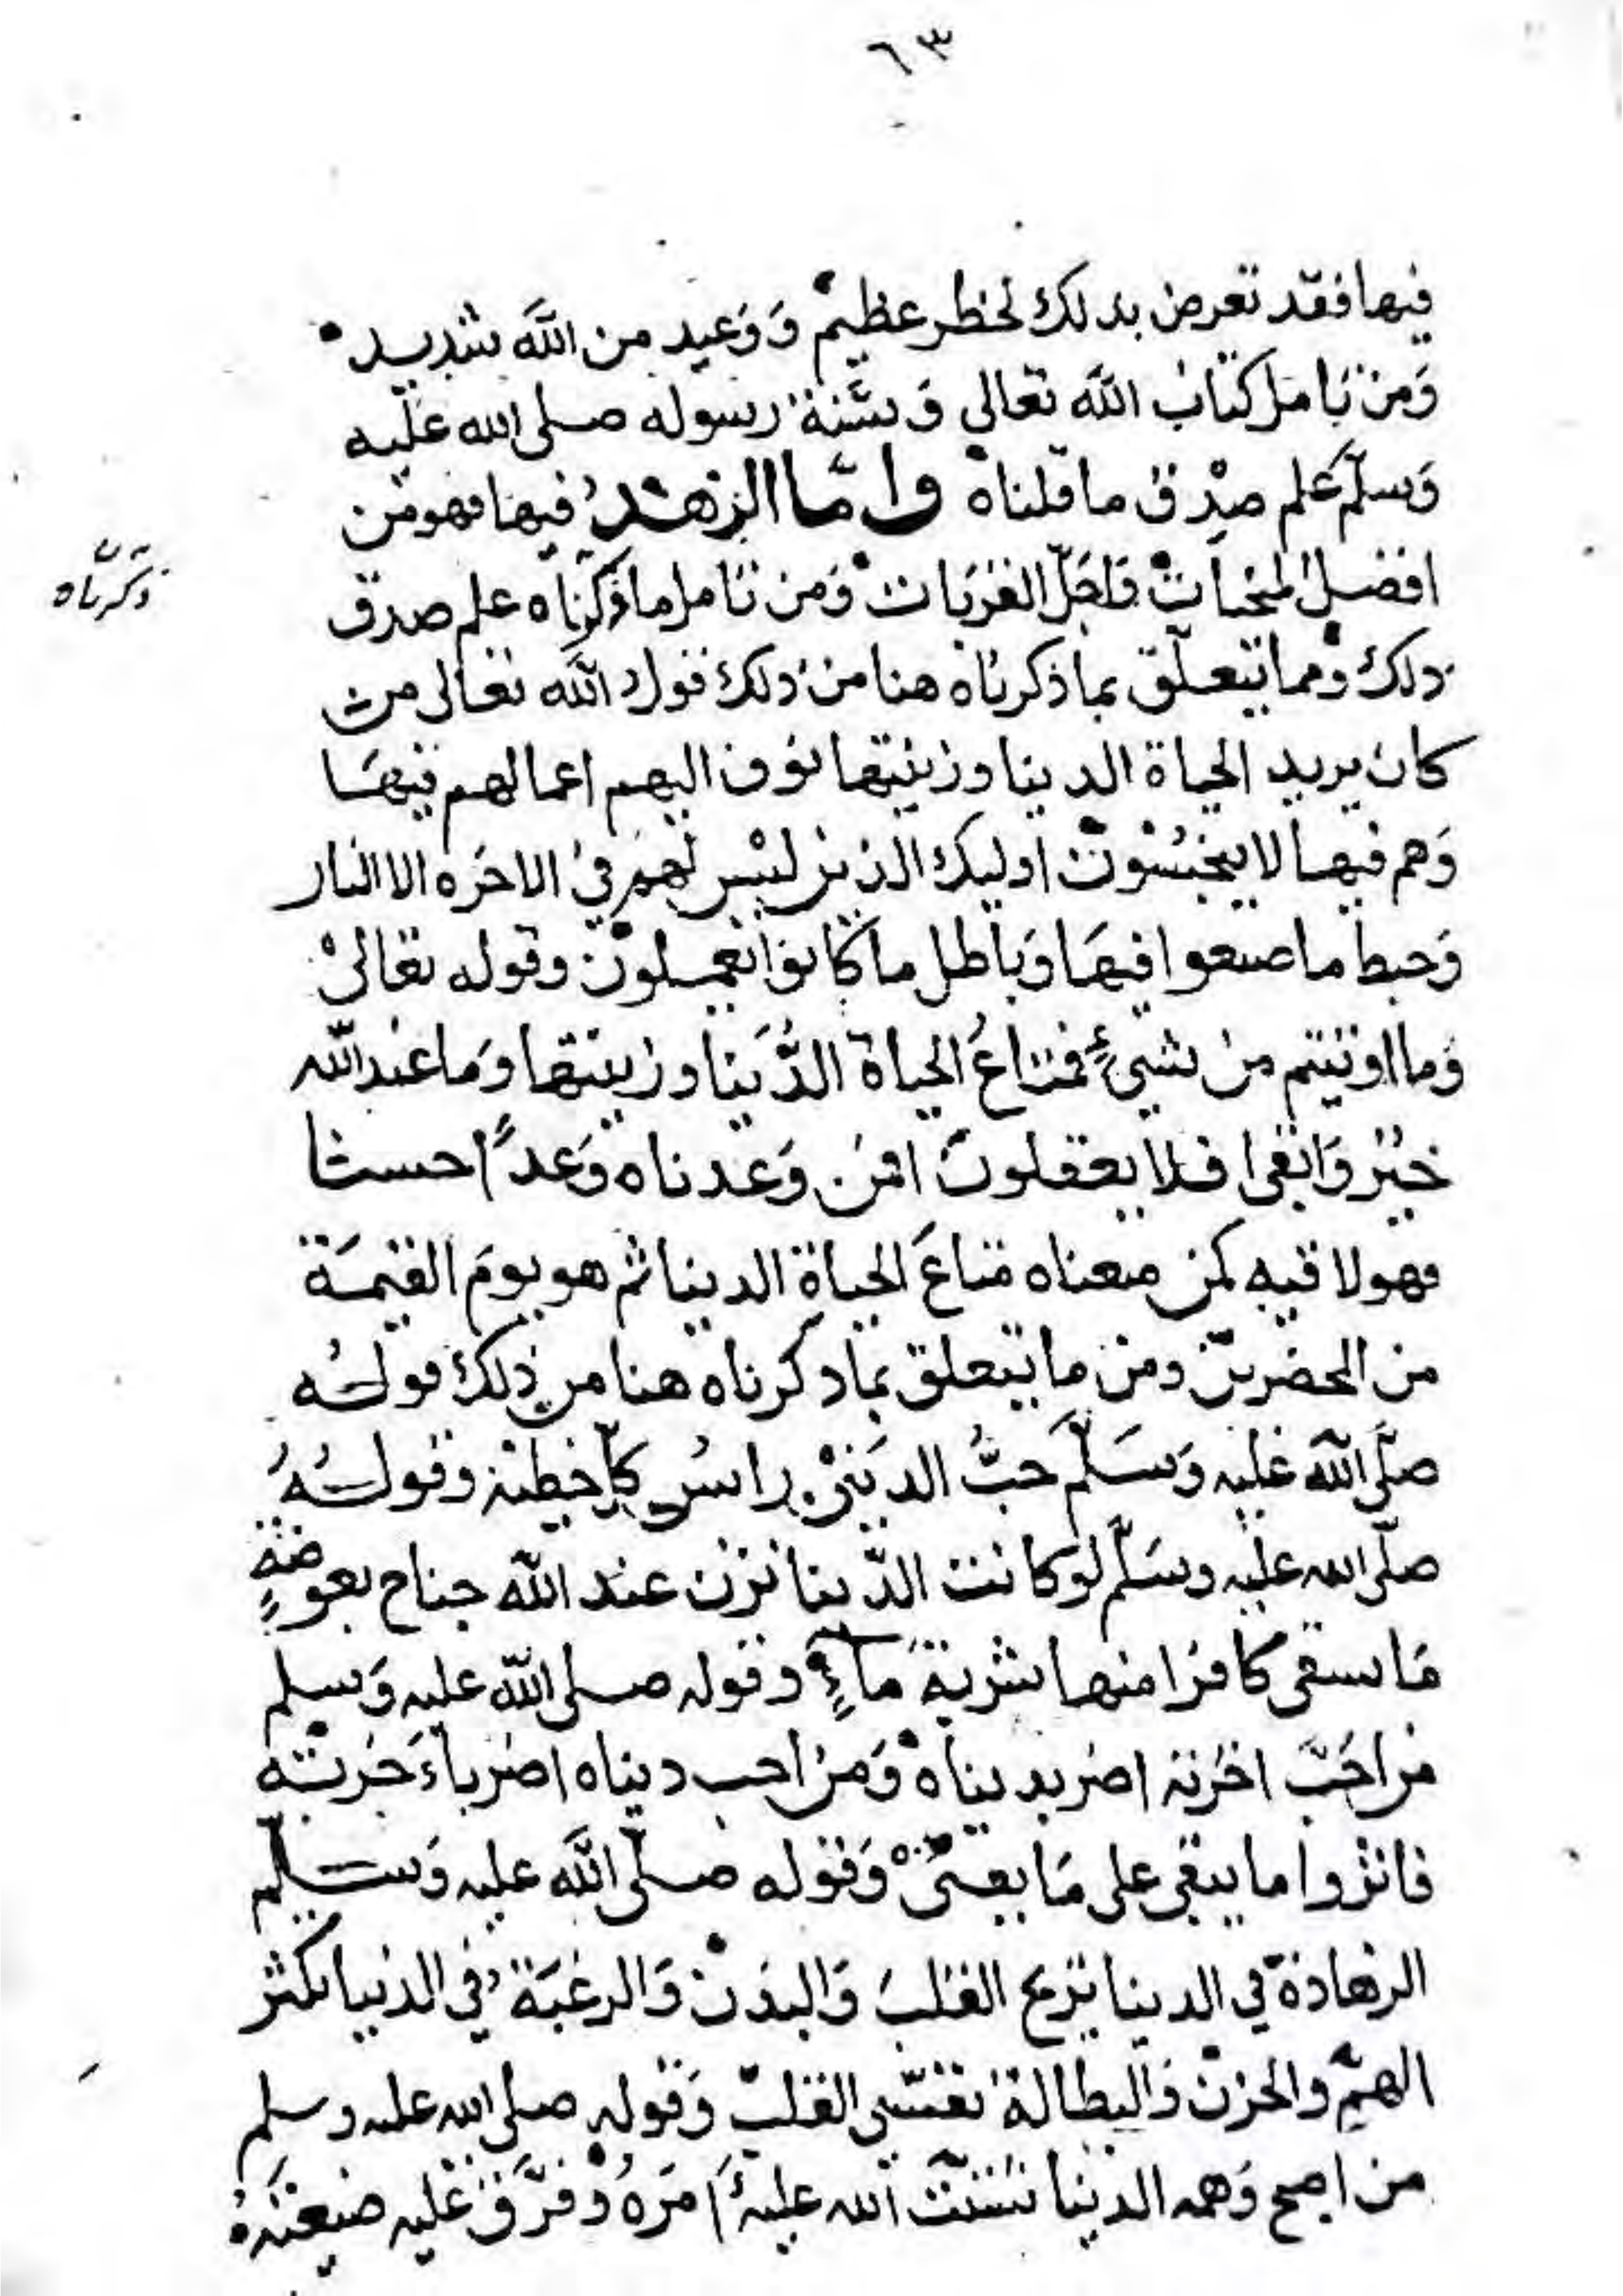 ٦٣
فيها فقد تعرض بذلك لخطر عظيم وَوَعيد من اللهَ شديد
وَمن تامل كتاب اللهَ تعالى وَسُنة رسوله صلى الله عليه
وَسلّم علم صِدْق ما قلناه وامّا الزهد فيها فهو من
افضل المنجيات وَاجَلّ القربَات وَمن تامل ما ذكرناه علم صدق
ذكرناه
ذلك ومما يتعلّق بما ذكرناه هنا من ذلك قول اللهَ تعالى من
كان يريد الحياة الدينا وزينتها نوف اليهم اعمالهم فيهَا
وَهم فيها لا يبخسُون اوليك الذين ليس لهم في الاخرَه الا النار
وَحبط ما صنعوا فيهَا وَباطل ما كانوا يعملون وقوله تعالى
وَما اوتيتم من شيءٍ فمتاعُ الحياة الدُّنيَا وزينتها وَما عند الله
خيْر وَابقى افلا يعقلون افمن وَعدناه وَعداً حسنا
فهو لاقيه كمن متعناه متاعَ الحياة الدينا ثم هو يومَ القيمَة
من المحضرين ومن ما يتعلق بما ذكرناه هنا من ذلك قوله
صلّى الله عليه وَسَلّم حَبُّ الدينى راسُ كل خطية وقولهُ
صلّى الله عليه وسَلّم لو كانت الدّينا تزن عند الله جناح بعوضةٍ
مَا سقى كافرا منها شربة مَاءٍ وقوله صلى اللّه عليه وَسلم
من احَبّ اخرته اضر بديناه وَمن احب ديناه اضر باءَخرته
فاثروا ما يبقى على مَا يفنى وَقوله صلّى اللهَ عليه وَسلّم
الزهادة في الدينا تريح القلبَ وَالبدن وَالرغبَة في الدنيا تكثر
الهمّ والحزن وَالبطالة تقسّى القلب وَقوله صلى الله عليه وسلم
من اصبح وَهمه الدينا شتت الله عليهُ امرَهُ وَفرّق عَليه ضيعتهُ